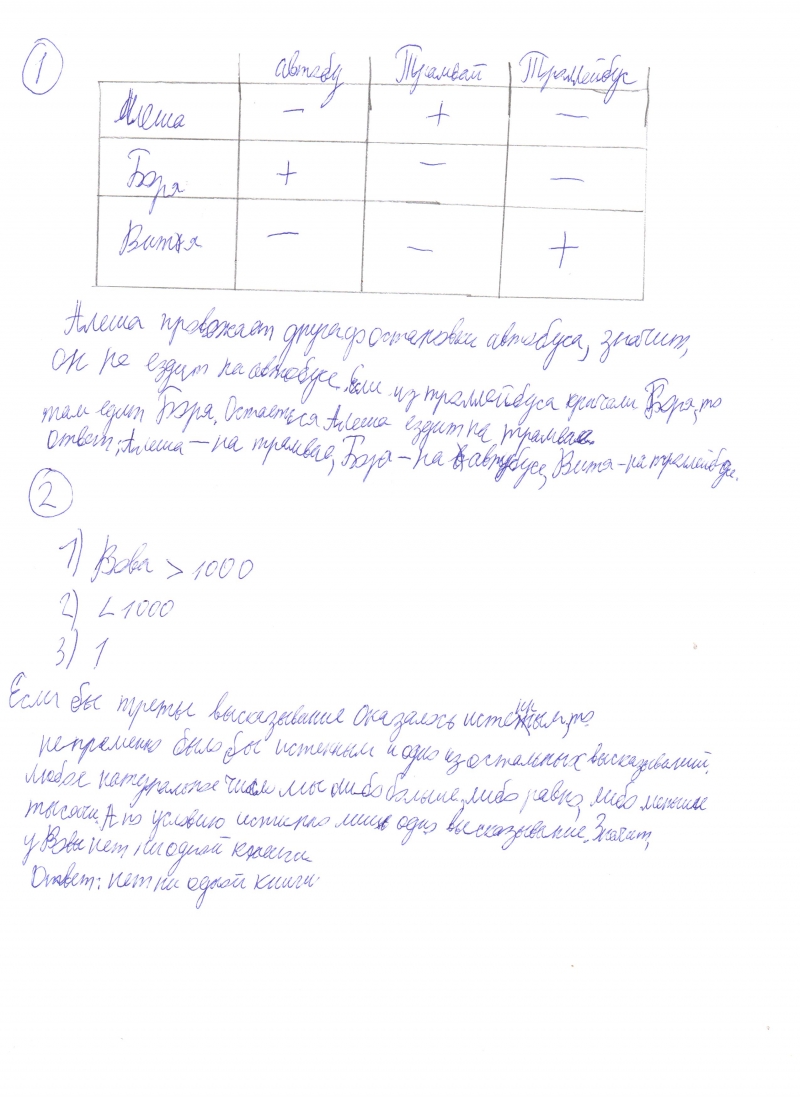 1
автобу Трамвай Троллейбус
Алеша — + —
Боря + — —
Витя — — +
Алеша провожает друга до остановки автобуса, значит,
он не ездит на автобусе. Если из троллейбуса кричали Боря, то
там едит Боря. Остаеться Алеша ездит на трамвае.
Ответ: Алеша — на трамвае, Боря — на автобусе, Витя — на троллейбусе.
2
1) Вова > 1000
2) < 1000
3) 1
Если бы треты высказывание оказалось истенным, то
непременно было бы истенным и одно из остальных высказываний.
Любое натуральное число мы либо больше, либо равно, либо меньше
тысячи. А по условию истинно лишь одно высказывание. Значит,
у Вовы нет ни одной книги.
Ответ: нет ни одной книги.